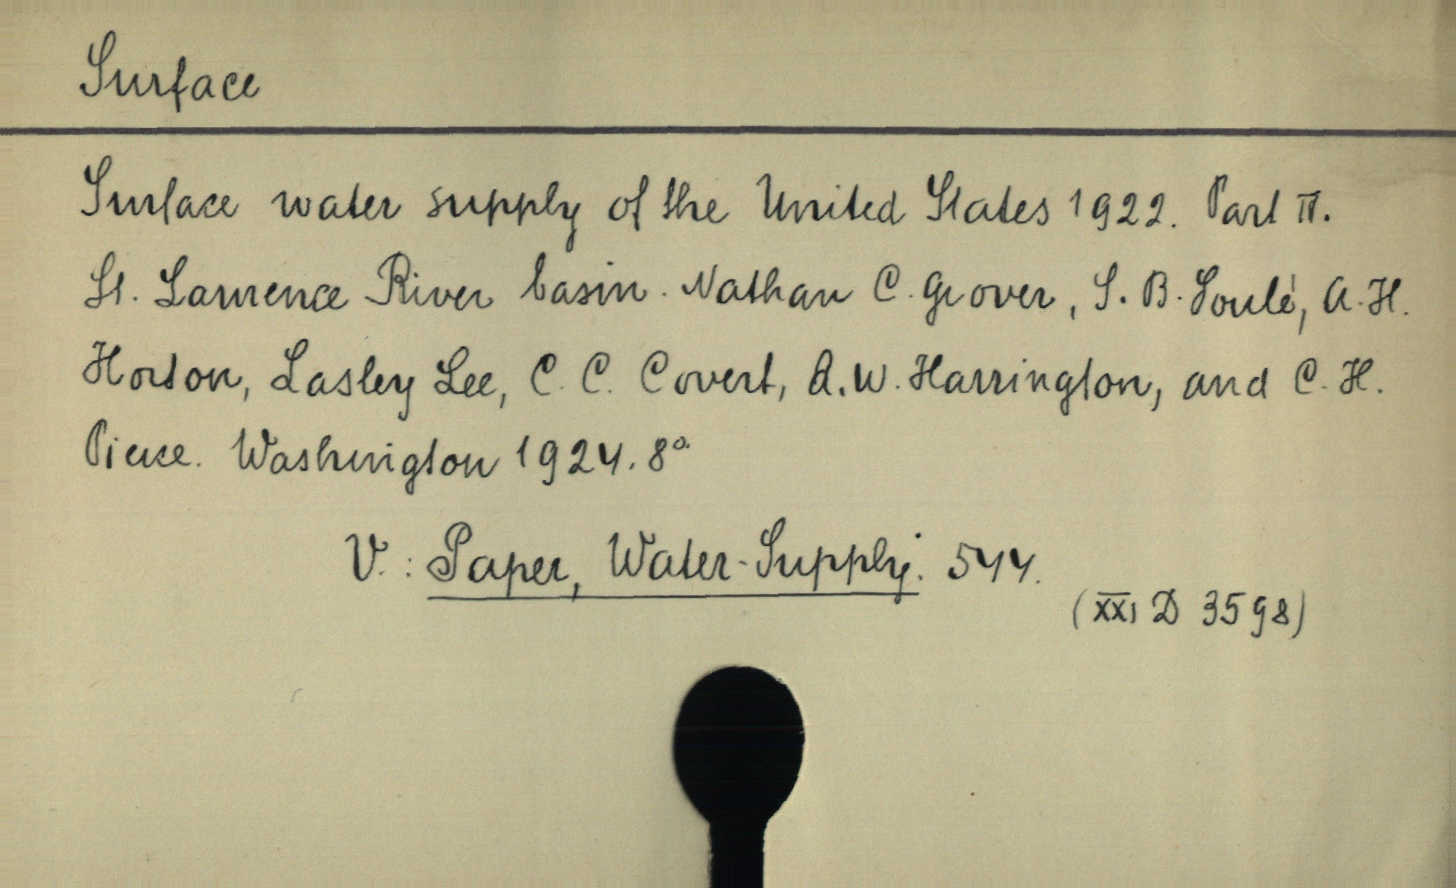 Surface
Surface water supply of the United States 1922. Part IV.
St. Lawrence River basin. Nathan C. Grover, S. B. Soulé, A. H.
Horton, Lasley Lee, C. C. Covert, A. W. Harrington, and C. H.
Pierce. Washington 1924. 8°
V.: Paper, Water-Supply. 544.
(XXI D 3598)